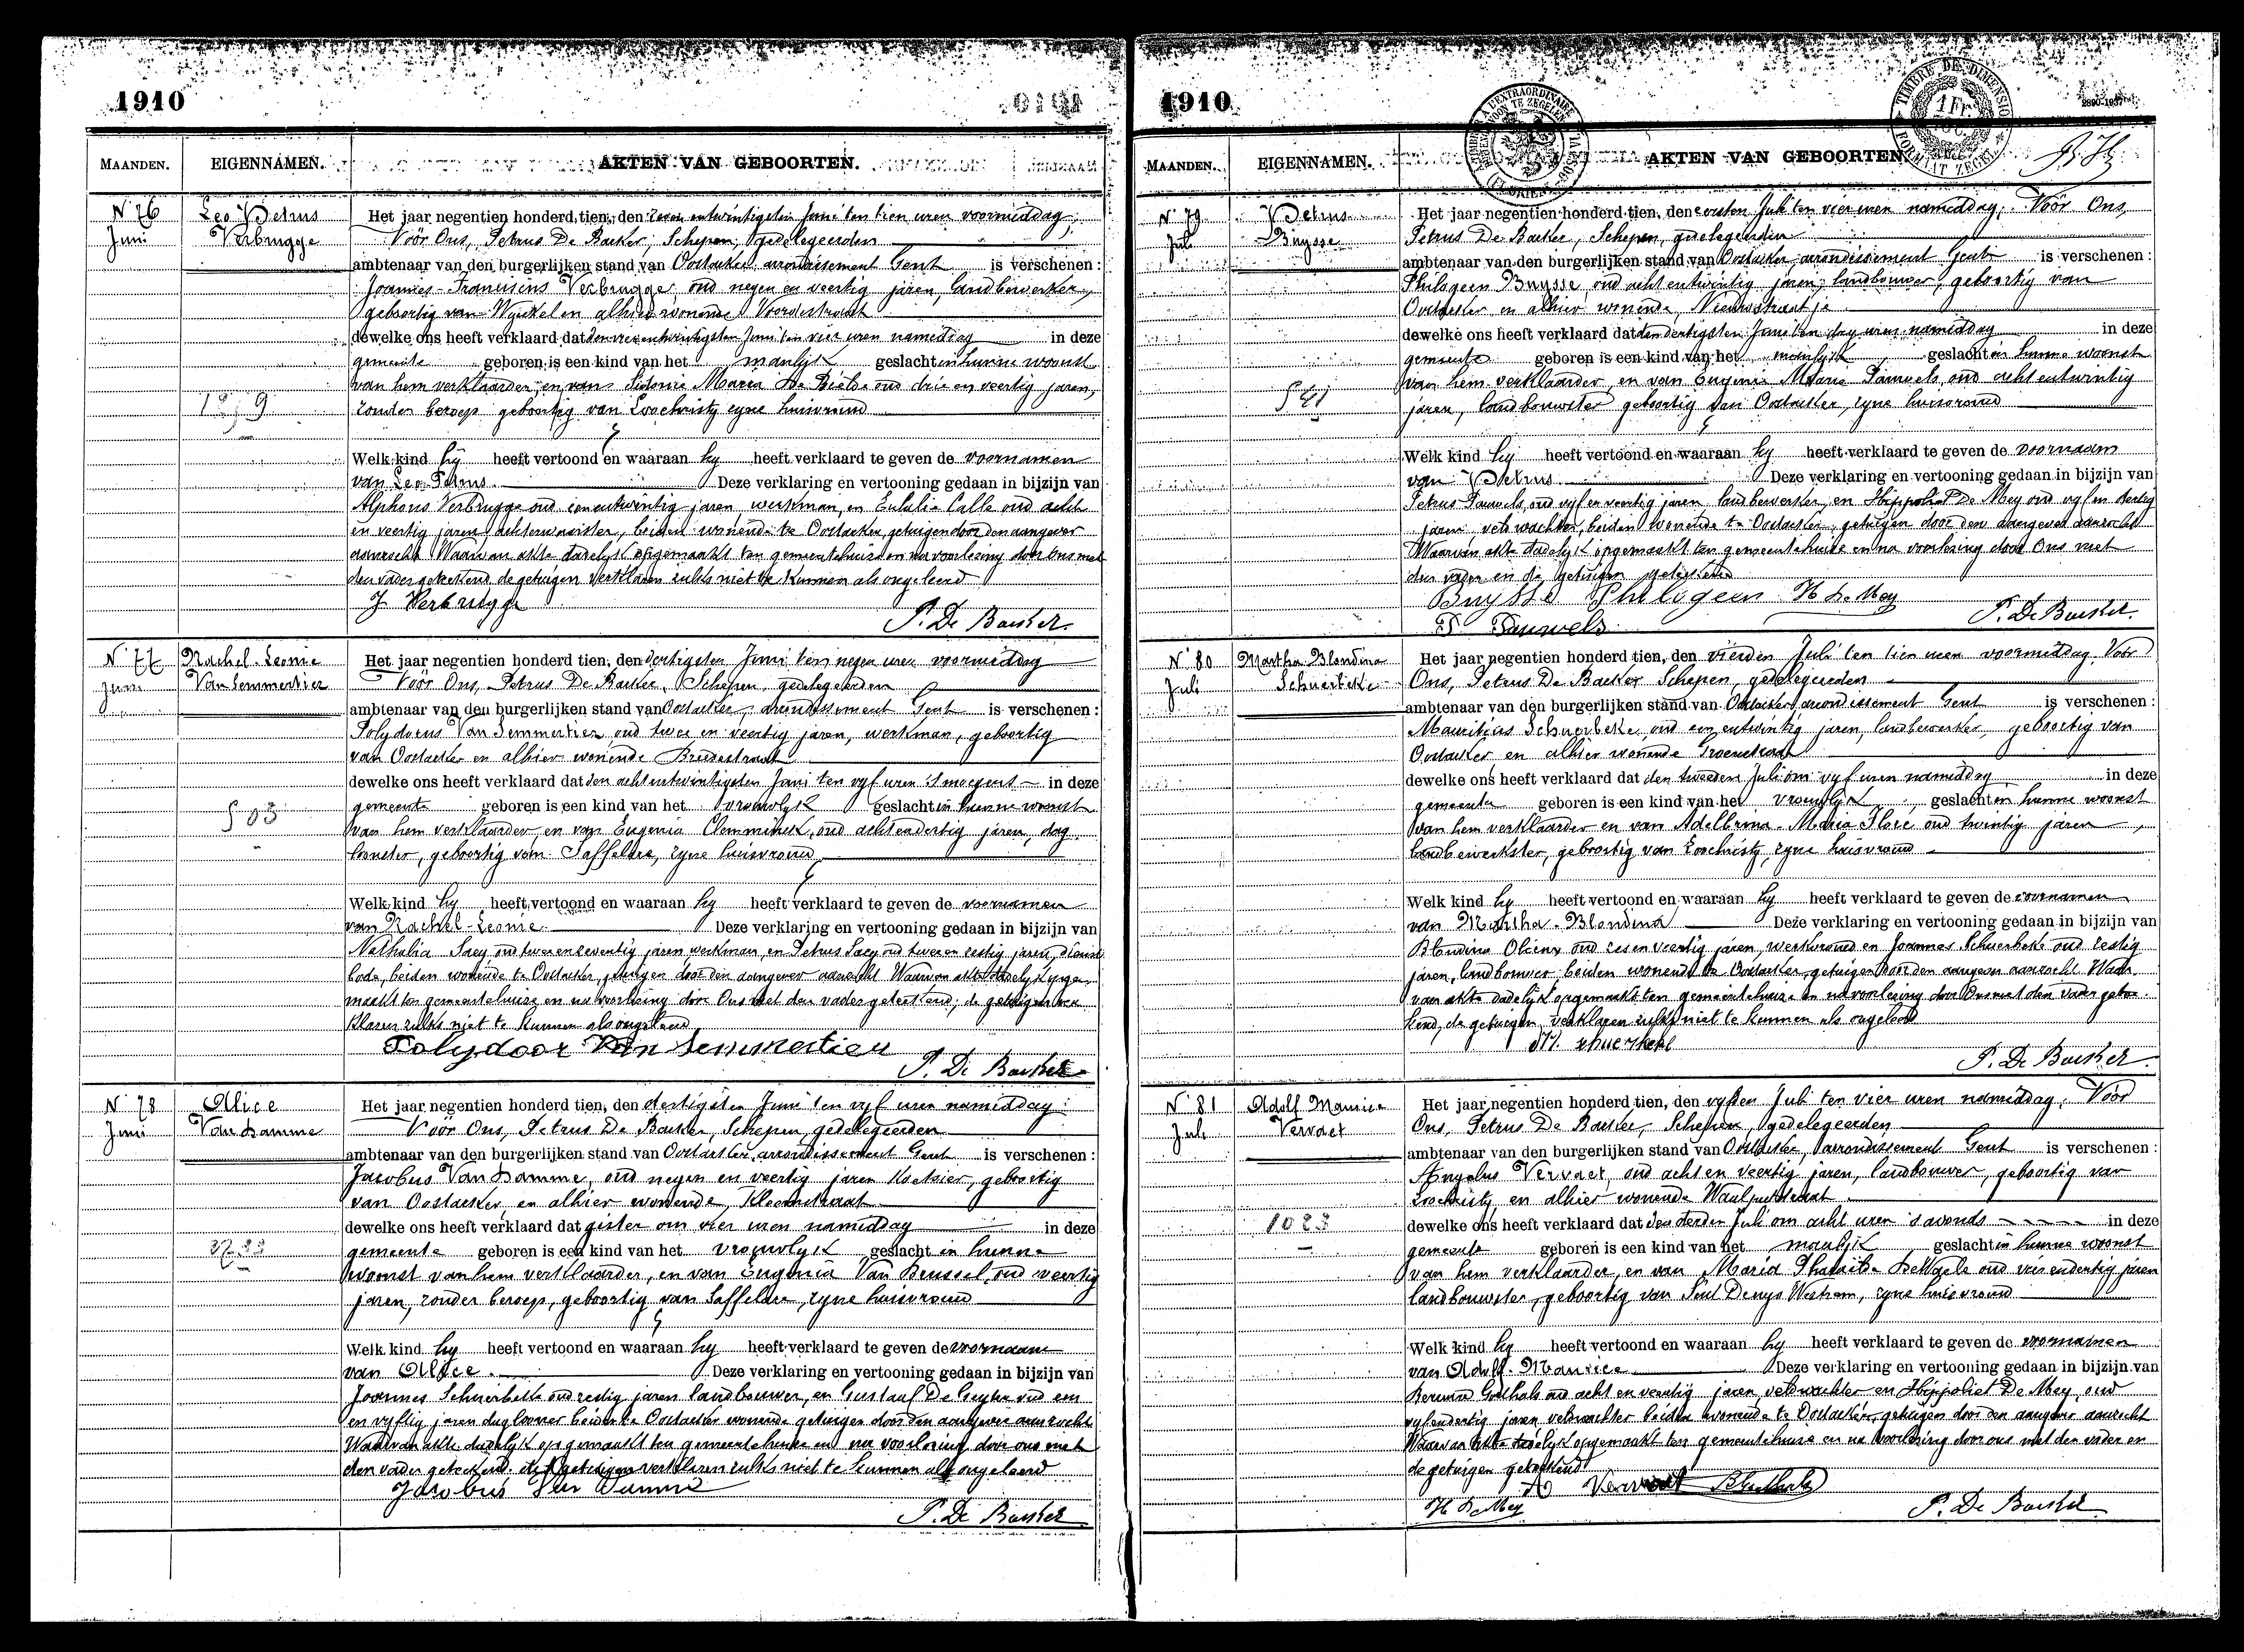 1910
MAANDEN. EIGENNAMEN. AKTEN VAN GEBOORTEN.
N 76 Leo Petrus
Juni Verbrugge
Het jaar negentien honderd tien, den zeven entwintigsten Juni ten tien uren voormiddag,
Vóór Ons, Petrus De Backer, Schepen, gedelegeerden
ambtenaar van den burgerlijken stand van Oostacker, arrondissement Gent is verschenen:
Joannes-Franciscus Verbrugge, oud negen en veertig jaren, landbewerker,
geboortig van Wynkel en alhier wonende Voordestraat
dewelke ons heeft verklaard dat den vierentwintigsten Juni ten vier uren namiddag in deze
gemeente geboren is een kind van het manlyk geslacht in hunne woonst
van hem verklaarder, en van Sidonie Maria De Biebe oud drie en veertig jaren,
zonder beroep geboortig van Loochristy zyne huisvrouw
Welk kind hy heeft vertoond en waaraan hy heeft verklaard te geven de voornamen
van Leo Petrus. Deze verklaring en vertooning gedaan in bijzijn van
Alphons Verbrugge oud een entwintig jaren, werkman, en Eulalie Calle oud acht
en veertig jaren, beiden wonende te Oostacker, getuigen door den aangever
aanzocht Waarvan akte dadelyk opgemaakt ten gemeentehuize en na voorlezing door ons met
den vader geteekend, de getuigen verklaren zulks niet te kunnen als ongeleerd
J Verbrugge
P. De Backer.
N 77 Rachel-Leonie
Juni Van Lemmertier
Het jaar negentien honderd tien, den dertigsten Juni ten negen uren voormiddag
Vóór Ons, Petrus De Backer, Schepen, gedelegeerden
ambtenaar van den burgerlijken stand van Oostacker, arrondissement Gent is verschenen:
Polydorus Van Lemmertier oud twee en veertig jaren, werkman, geboortig
van Oostacker en alhier wonende Breedestraat
dewelke ons heeft verklaard dat den acht entwintigsten Juni ten vyf uren 's morgens in deze
gemeente geboren is een kind van het vrouwlyk geslacht in hunne woonst
van hem verklaarder, en van Eugenia Clemminck, oud acht en dertig jaren, dag
loonster, geboortig van Saffelare, zyne huisvrouw
Welk kind hy heeft vertoond en waaraan hy heeft verklaard te geven de voornamen
van Rachel-Leonie Deze verklaring en vertooning gedaan in bijzijn van
Nathalia Saey oud twee en zeventig jaren werkman, en Petrus Saey oud twee en zestig jaren, dienst
bode, beiden wonende te Oostacker, getuigen door den aangever aanzocht Waarvan akte dadelyk opge
maakt ten gemeentehuize en na voorlezing door Ons met den vader geteekend; de getuigen ver
klaren zulks niet te kunnen als ongeleerd
Polydoor Van Lemmertier
P. De Backer
N 78 Alice
Juni Van Damme
Het jaar negentien honderd tien, den dertigsten Juni ten vyf uren namiddag:
Vóór Ons, Petrus De Backer, Schepen, gedelegeerden
ambtenaar van den burgerlijken stand van Oostacker, arrondissement Gent is verschenen:
Jacobus Van Damme, oud negen en veertig jaren Koetsier, geboortig
van Oostacker, en alhier wonende, Kloosterstraat
dewelke ons heeft verklaard dat gister om vier uren namiddag in deze
gemeente geboren is een kind van het vrouwlyk geslacht in hunne
woonst van hem verklaarder, en van Eugenia Van Beussel, oud veertig
jaren, zonder beroep, geboortig van Saffelare, zyne huisvrouw
Welk kind hy heeft vertoond en waaraan hy heeft verklaard te geven de voornaam
van Alice. Deze verklaring en vertooning gedaan in bijzijn van
Joannes Schuerbeke oud zestig jaren landbouwer, en Gustaaf De Geyter oud een
en vyftig jaren daglooner beiden te Oostacker wonende getuigen door den aangever aanzocht
Waarvan akte dadelyk opgemaakt ten gemeentehuize en na voorlezing door ons met
den vader geteekend, de getuigen verklaren zulks niet te kunnen als ongeleerd
Jacobus Van Damme
P. De Backer
1910
MAANDEN. EIGENNAMEN. AKTEN VAN GEBOORTEN
N 79 Petrus
Juli Buysse
Het jaar negentien honderd tien, den eersten Juli ten vier uren namiddag, Vóór Ons,
Petrus De Backer, Schepen, gedelegeerden
ambtenaar van den burgerlijken stand van Oostacker, arrondissement Gent is verschenen:
Philogeen Buysse, oud acht entwintig jaren, landbouwer, geboortig van
Oostacker en alhier wonende, Nieuwstraatje
dewelke ons heeft verklaard dat den dertigsten Juni ten dry uren namiddag in deze
gemeente geboren is een kind van het manlyk geslacht in hunne woonst
van hem verklaarder, en van Eugenie Marie Pauwels, oud acht entwintig
541
jaren, landbouwster geboortig van Oostacker, zyne huisvrouw
Welk kind hy heeft vertoond en waaraan hy heeft verklaard te geven de voornaam
van Petrus Deze verklaring en vertooning gedaan in bijzijn van
Petrus Pauwels, oud vyf en veertig jaren, landbewerker, en Hippoliet De Mey oud vyf en dertig
jaren, veldwachter, beiden wonende te Oostacker, getuigen door den aangever aanzocht
Waarvan akte dadelyk opgemaakt ten gemeentehuize en na voorlezing door Ons met
den vader en de getuigen geteekend
Buysse Philogeen H De Mey
P. Pauwels
P. De Backer.
N 80 Martha Blondina
Juli Schuerbeke
Het jaar negentien honderd tien, den vierden Juli ten tien uren voormiddag, Vóór
Ons, Petrus De Backer Schepen, gedelegeerden
ambtenaar van den burgerlijken stand van Oostacker, arrondissement Gent is verschenen:
Mauritius Schuerbeke, oud een entwintig jaren, landbewerker, geboortig van
Oostacker, en alhier wonende Groenestraat
dewelke ons heeft verklaard dat den tweeden Juli om vyf uren namiddag in deze
gemeente geboren is een kind van het vrouwlyk geslacht in hunne woonst
van hem verklaarder en van Adelbrma-Maria Flore oud twintig jaren,
landbewerkster, geboortig van Loochristy, zyne huisvrouw
Welk kind hy heeft vertoond en waaraan hy heeft verklaard te geven de voornamen
van Martha-Blondina Deze verklaring en vertooning gedaan in bijzijn van
Blondina oud zes en veertig jaren, werkvrouw en Joannes Schuerbeke oud zestig
jaren, landbouwer beiden wonende te Oostacker, getuigen door den aangever aanzocht Waar
van akte dadelyk opgemaakt ten gemeentehuize en na voorlezing door Ons met den vader getee
kend, de getuigen verklaren zulks niet te kunnen als ongeleerd
P. De Backer
N 81 Adolf Maurice
Juli Vervaet
Het jaar negentien honderd tien, den vyfden Juli ten vier uren namiddag, Vóór
Ons, Petrus De Backer, Schepen, gedelegeerden
ambtenaar van den burgerlijken stand van Oostacker, arrondissement Gent is verschenen:
Angelus Vervaet, oud acht en veertig jaren, landbouwer, geboortig van
Loochristy en alhier wonende Waalputstraat
1023
dewelke ons heeft verklaard dat den derden Juli om acht uren 's avonds in deze
gemeente geboren is een kind van het manlyk geslacht in hunne woonst
van hem verklaarder, en van Maria De Waele oud vier endertig jaren
landbouwster, geboortig van Sint Denys Westrem, zyne huisvrouw
Welk kind hy heeft vertoond en waaraan hy heeft verklaard te geven de voornamen
van Adolf-Maurice Deze verklaring en vertooning gedaan in bijzijn van
Goethals oud acht en veertig jaren, veldwachter en Hippoliet De Mey, oud
vyfendertig jaren veldwachter beiden wonende te Oostacker, getuigen door den aangever aanzocht
Waarvan akte dadelyk opgemaakt ten gemeentehuize en na voorlezing door ons met den vader en
de getuigen geteekend
A Vervaet
H De Mey
P. De Backer